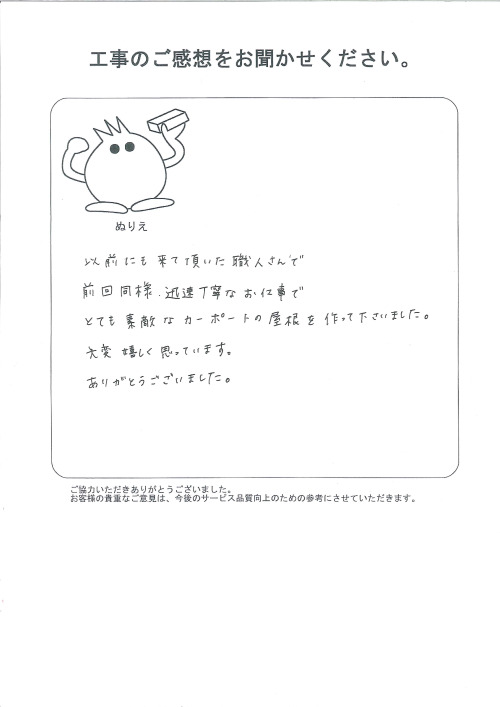 工事のご感想をお聞かせください。
ぬりえ
以前にも来て頂いた職人さんで
前回同様、迅速丁寧なお仕事で
とても素敵なカーポートの屋根を作って下さいました。
大変嬉しく思っています。
ありがとうございました。
ご協力いただきありがとうございました。
お客様の貴重なご意見は、今後のサービス品質向上のための参考にさせていただきます。